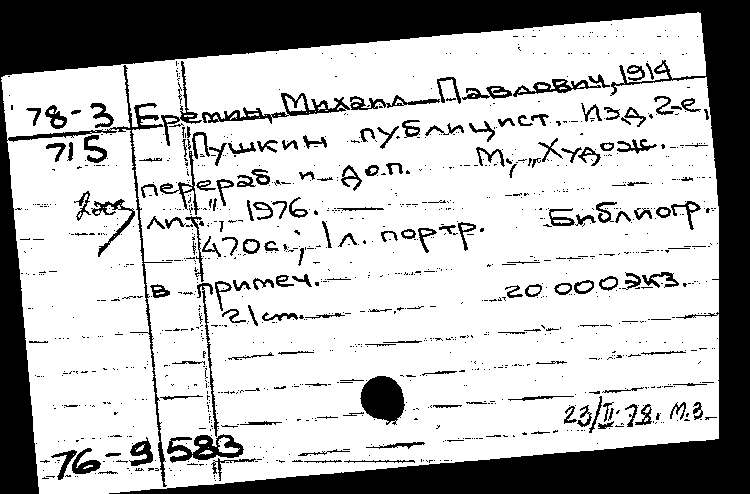 78-3 Еремин, Михаил Павлович, 1914
715 Пушкин публицист. Изд. 2-е,
перераб. и доп. М., „Худож.
лит.", 1976.
470с.; 1 л. портр. Библиогр.
в примеч. 20 000 экз.
21 cm.
23/II-78. М.З
76-9583